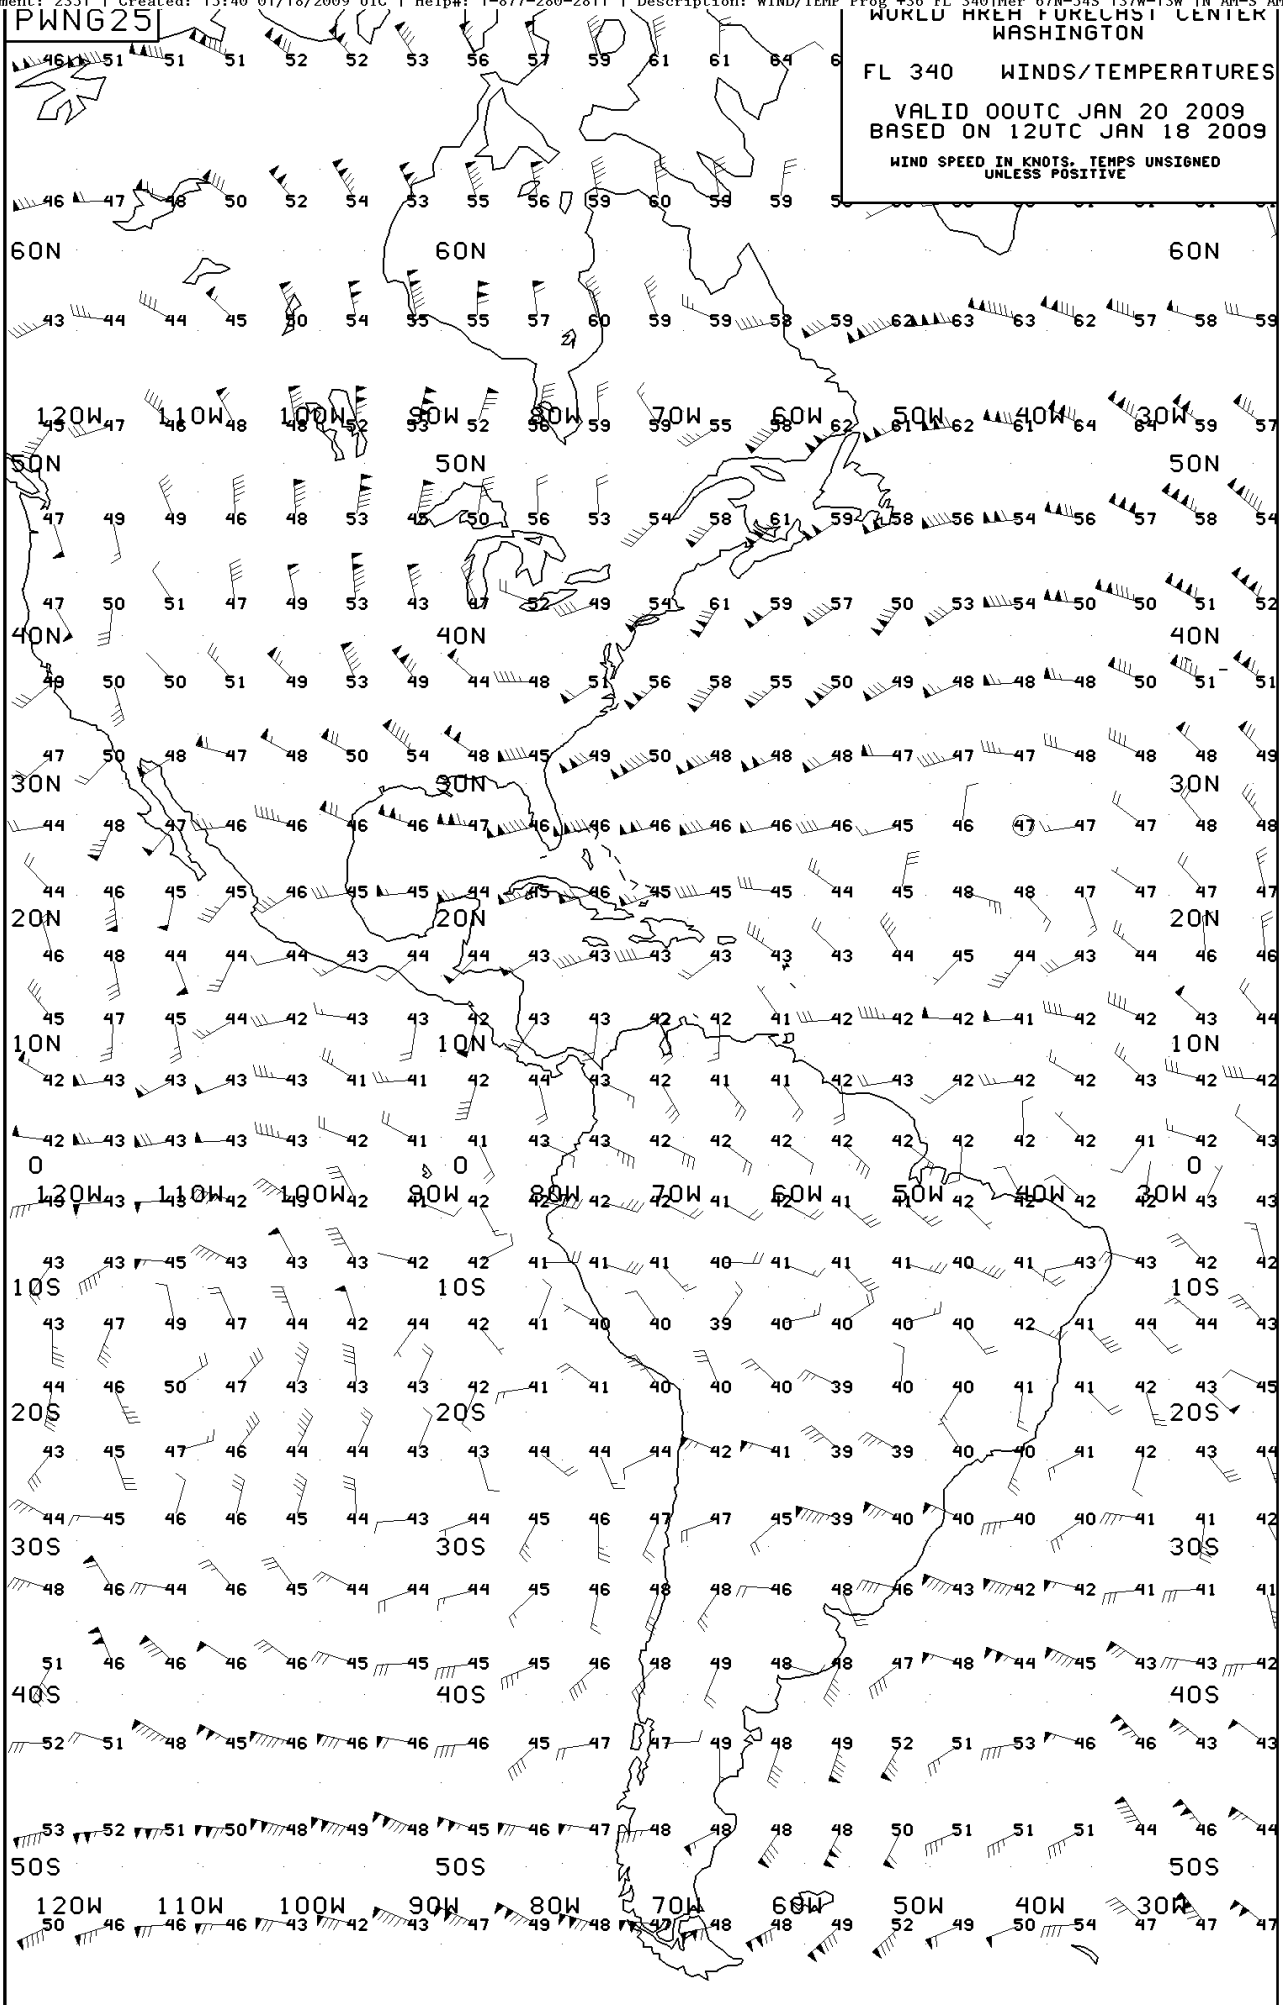 ment: 2331 | Created: 15:40 01/18/2009 UTC | Help#: 1-877-280-2811 | Description: WIND/TEMP Prog +36 FL 340|Mer 67N-54S 137W-13W |N AM-S AM
PWNG25
WORLD AREA FORECAST CENTER
WASHINGTON
FL 340 WINDS/TEMPERATURES
VALID 00UTC JAN 20 2009
BASED ON 12UTC JAN 18 2009
WIND SPEED IN KNOTS. TEMPS UNSIGNED
UNLESS POSITIVE
46 51 51 51 52 52 53 56 57 59 61 61 64
46 47 48 50 52 54 53 55 56 59 60 59 59
60N 60N 60N
43 44 44 45 50 54 55 55 57 60 59 59 58 59 62 63 63 62 57 58 59
120W 110W 100W 90W 80W 70W 60W 50W 40W 30W
47 48 48 52 53 52 56 59 59 55 58 62 61 62 61 64 64 59 57
50N 50N 50N
47 49 49 46 48 53 45 50 56 53 54 58 61 59 58 56 54 56 57 58 54
47 50 51 47 49 53 43 47 52 49 54 61 59 57 50 53 54 50 50 51 52
40N 40N 40N
49 50 50 51 49 53 49 44 48 51 56 58 55 50 49 48 48 48 50 51 51
47 50 48 47 48 50 54 48 45 49 50 48 48 48 47 47 47 48 48 48 49
30N 30N 30N
44 48 47 46 46 46 46 47 46 46 46 46 46 46 45 46 47 47 47 48 48
44 46 45 45 46 45 45 44 45 46 45 45 45 44 45 48 48 47 47 47 47
20N 20N 20N
46 48 44 44 44 43 44 44 43 43 43 43 43 43 44 45 44 43 44 46 46
45 47 45 44 42 43 43 42 43 43 42 42 41 42 42 42 41 42 42 43 44
10N 10N 10N
42 43 43 43 43 41 41 42 44 43 42 41 41 42 43 42 42 42 43 42 42
42 43 43 43 43 42 41 41 43 43 42 42 42 42 42 42 42 42 41 42 43
0 0 0
120W 110W 100W 90W 80W 70W 60W 50W 40W 30W
43 43 43 42 43 42 41 42 42 42 42 41 42 41 41 42 42 42 42 43 43
43 43 45 43 43 43 42 42 41 41 41 40 41 41 41 40 41 43 43 42 42
10S 10S 10S
43 47 49 47 44 42 44 42 41 40 40 39 40 40 40 40 42 41 44 44 43
44 46 50 47 43 43 43 42 41 41 40 40 40 39 40 40 41 41 42 43 45
20S 20S 20S
43 45 47 46 44 44 43 43 44 44 44 42 41 39 39 40 40 41 42 43 44
44 45 46 46 45 44 43 44 45 46 47 47 45 39 40 40 40 40 41 41 42
30S 30S 30S
48 46 44 46 45 44 44 44 45 46 48 48 46 48 46 43 42 42 41 41 41
51 46 46 46 46 45 45 45 45 46 48 49 48 48 47 48 44 45 43 43 42
40S 40S 40S
52 51 48 45 46 46 46 46 45 47 47 49 48 49 52 51 53 46 46 43 43
53 52 51 50 48 49 48 45 46 47 48 48 48 48 50 51 51 51 44 46 44
50S 50S 50S
120W 110W 100W 90W 80W 70W 60W 50W 40W 30W
50 46 46 46 43 42 43 47 49 48 47 48 48 49 52 49 50 54 47 47 47